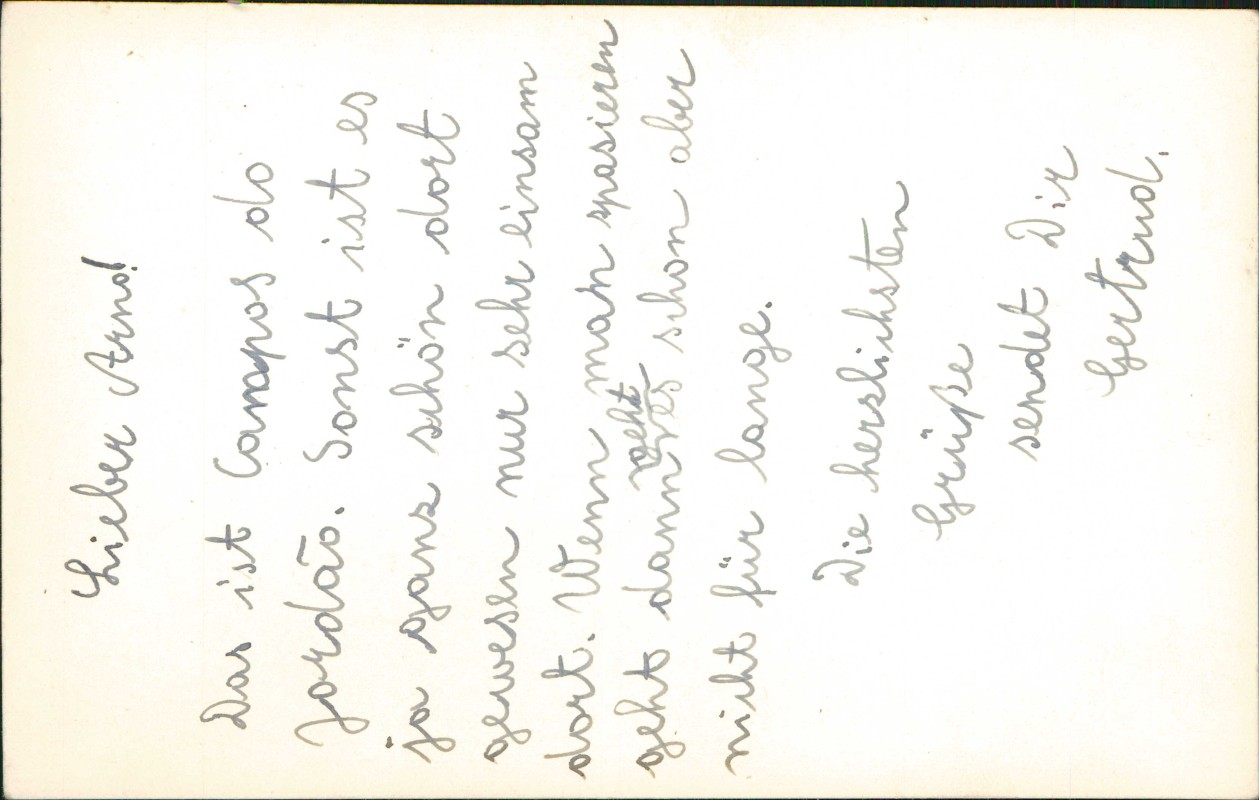 Lieber Arno!
Das ist Campos do
Jordão. Sonst ist es
ja ganz schön dort
gewesen nur sehr einsam
dort. Wenn man spasieren
geht dann geht es schon aber
nicht für lange.
Die herslichsten
Grüße
sendet Dir
Gertrud.